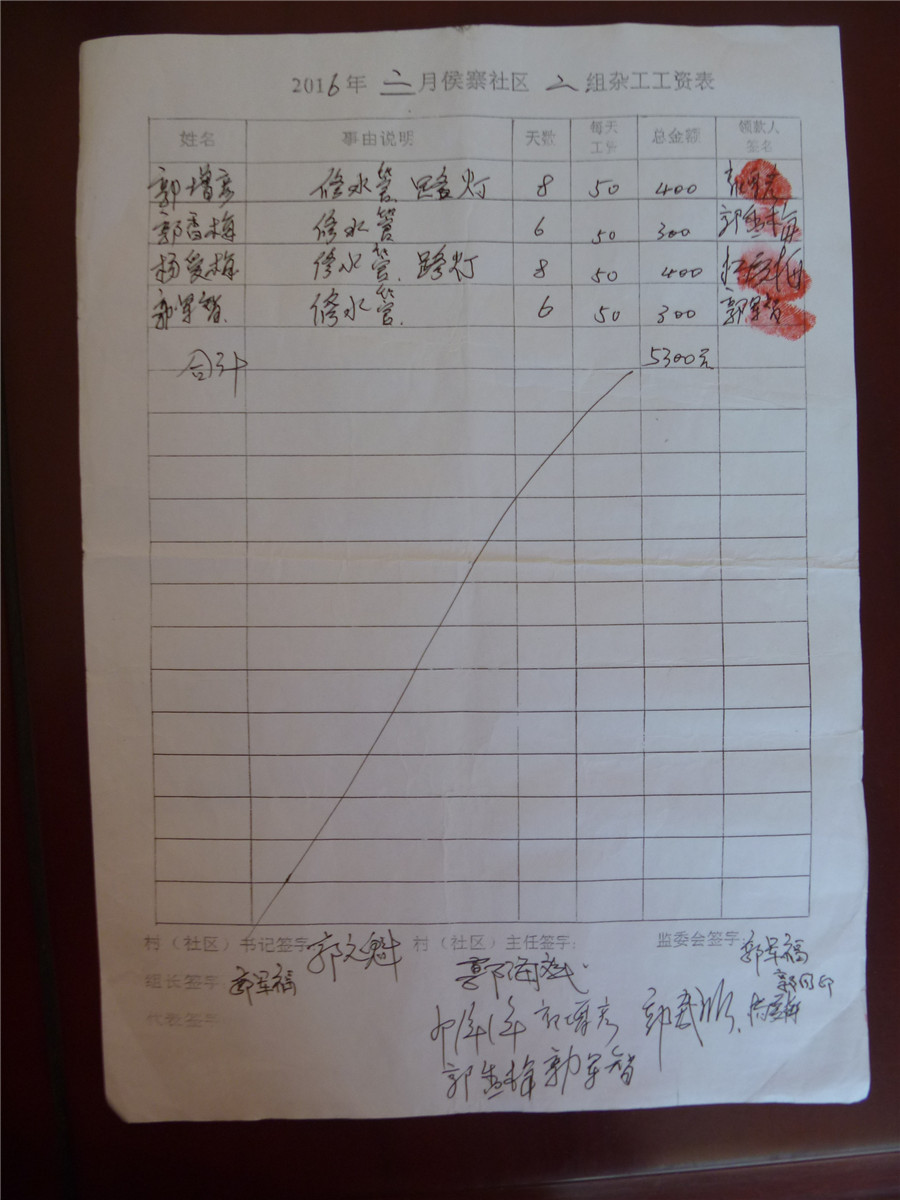 2016年 二 月侯寨社区 二 组杂工工资表
姓名 事由说明 天数 每天工价 总金额 领款人签名
郭增彦 修水管 路灯 8 50 400
郭香梅 修水管 6 50 300 郭香梅
杨爱梅 修水管.路灯 8 50 400
郭军智. 修水管. 6 50 300 郭军智
合计 5300元
村（社区）书记签字: 郭文魁 村（社区）主任签字: 监委会签字: 郭军福
组长签字: 郭军福
代表签字:
郭增彦
郭军智